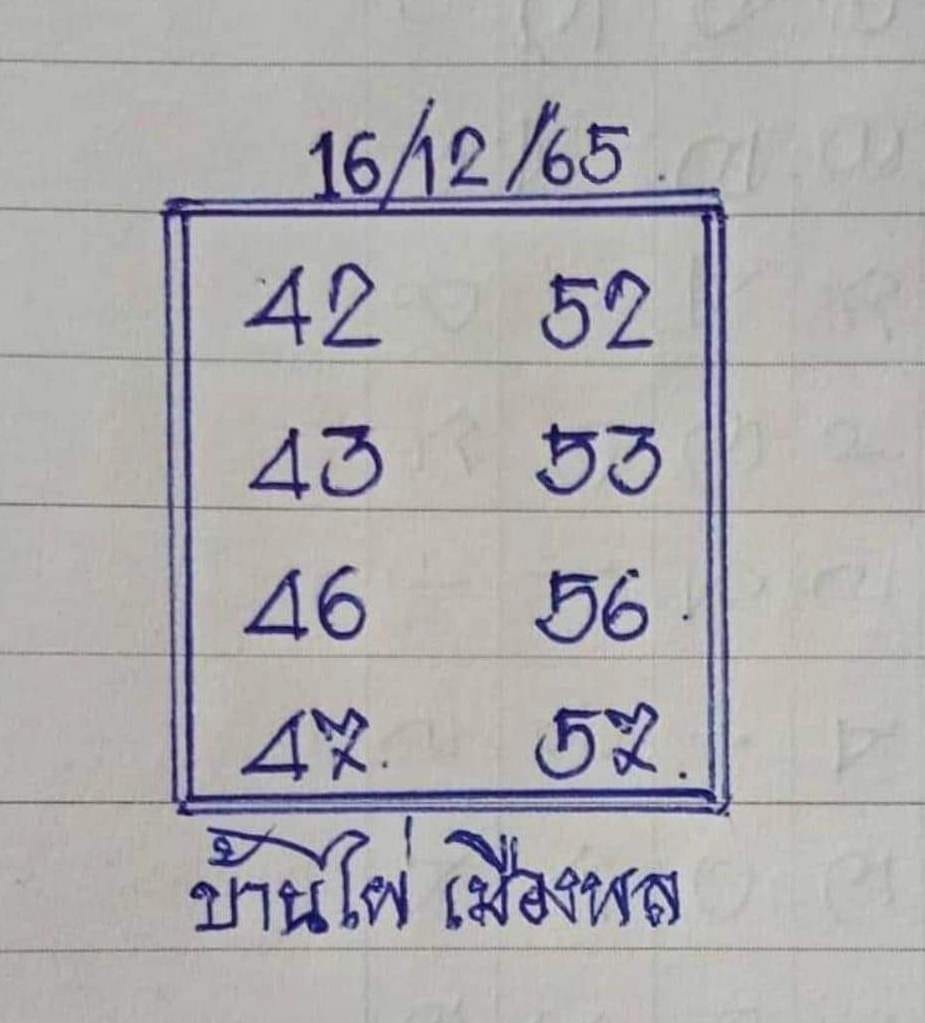 16/12/65
42 52
43 53
46 56
47 57
บ้านไผ่ เมืองพล